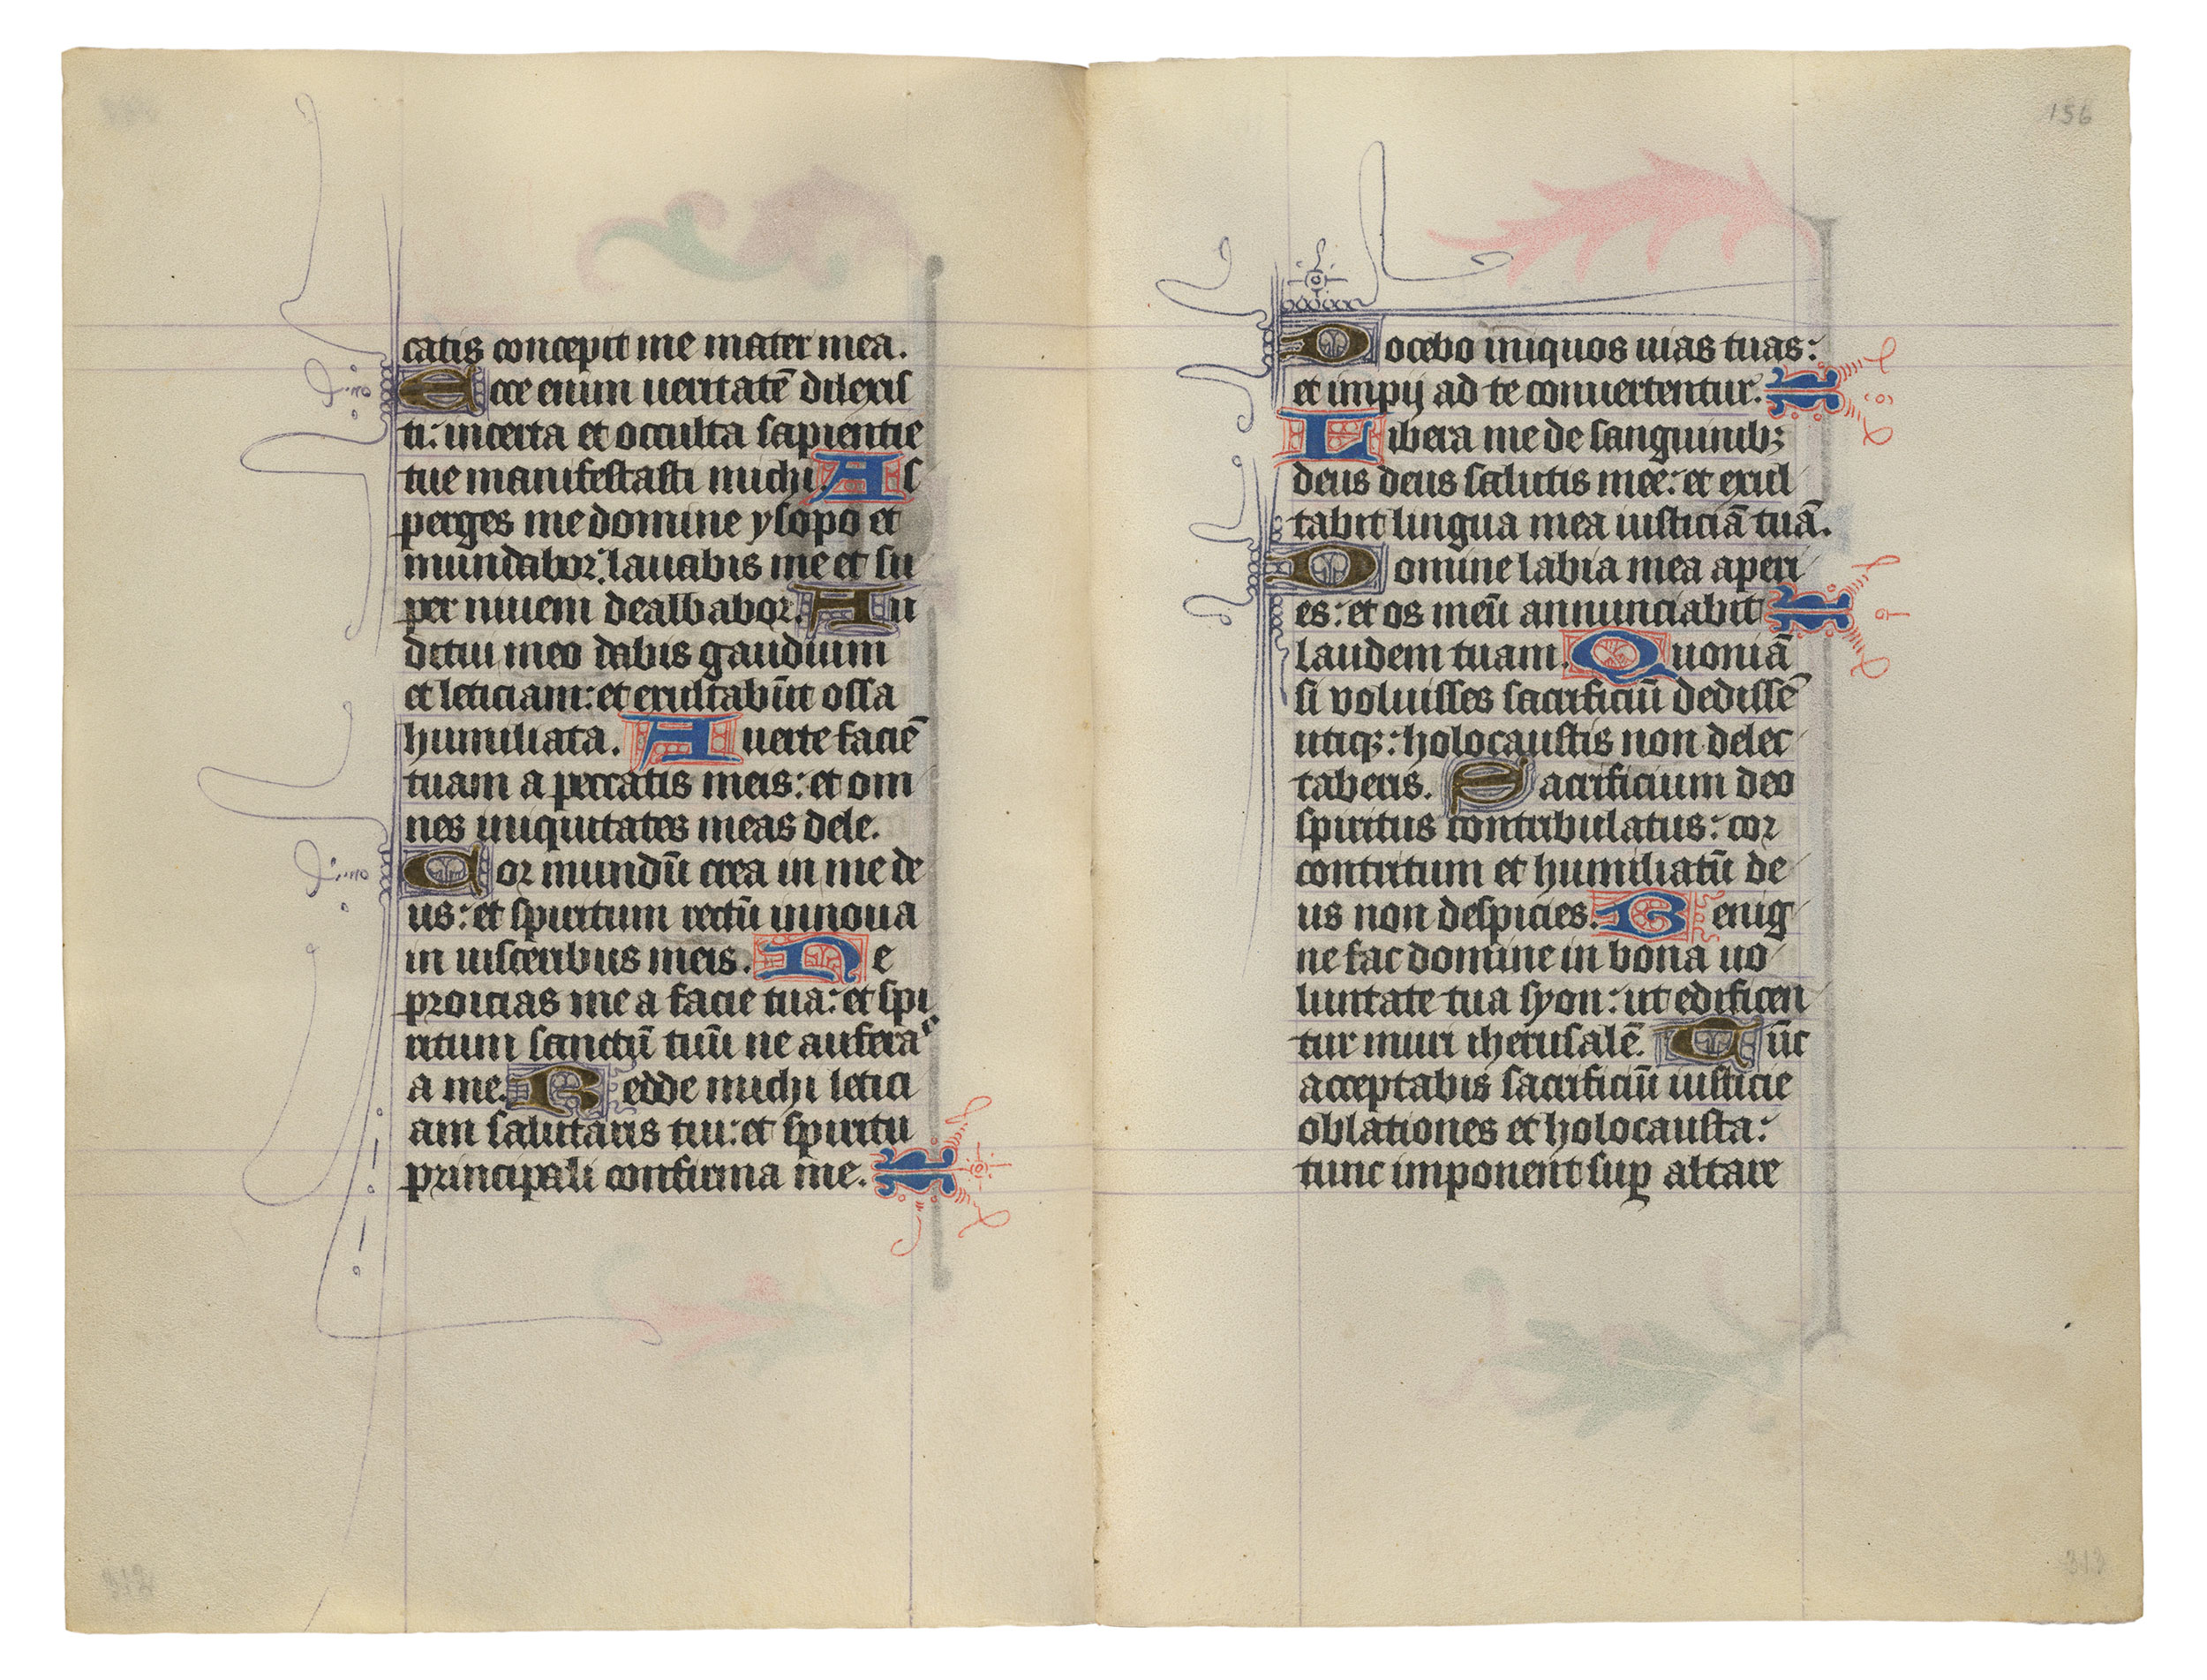 catis concepit me mater mea.
Ecce enim ueritatē dilexis
ti: incerta et occulta sapientie
tue manifestasti michi. As
perges me domine ysopo et
mundabor: lauabis me et su
per niuem dealbabor. Au
ditui meo dabis gaudium
et leticiam: et exultabūt ossa
humiliata. Auerte faciē
tuam a peccatis meis: et om
nes iniquitates meas dele.
Cor mundū crea in me de
us: et spiritum rectū innoua
in uisceribus meis. Ne
proicias me a facie tua: et spi
ritum sanctū tuū ne auferas
a me. Redde michi letici
am salutaris tui: et spiritu
principali confirma me.
156
Docebo iniquos uias tuas:
et impij ad te conuertentur.
Libera me de sanguinibꝫ
deus deus salutis mee: et exul
tabit lingua mea iusticiā tuā.
Domine labia mea aperi
es: et os meū annunciabit
laudem tuam. Quoniā
si voluisses sacrificiū dedissē
utiqꝫ: holocaustis non delec
taberis. Sacrificium deo
spiritus contribulatus: cor
contritum et humiliatū de
us non despicies. Benig
ne fac domine in bona uo
luntate tua syon: ut edificen
tur muri iherusalē. Tūc
acceptabis sacrificiū iusticie
oblationes et holocausta:
tunc imponent suꝑ altare
312
313